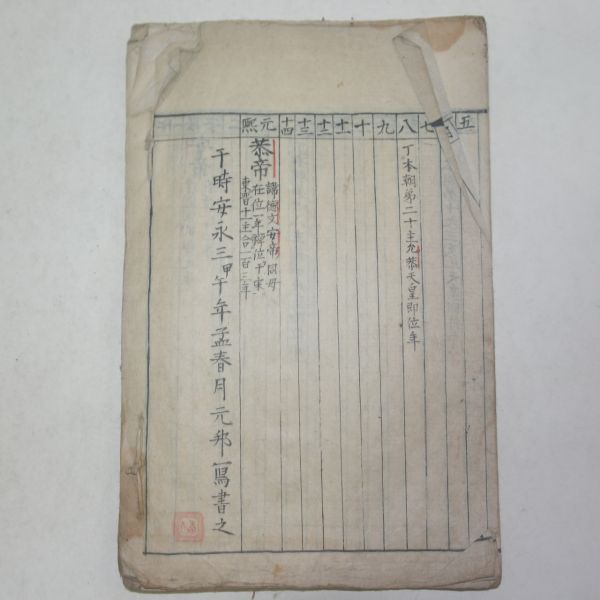 五
七
八
丁本朝第二十主允恭天皇即位年
九
十
十一
十二
十三
十四
元熙
恭帝
諱徳文安帝同母
在位一年禅位于宋
東晋十一主合一百三年
于時安永三甲午年孟春月元邦寫書之